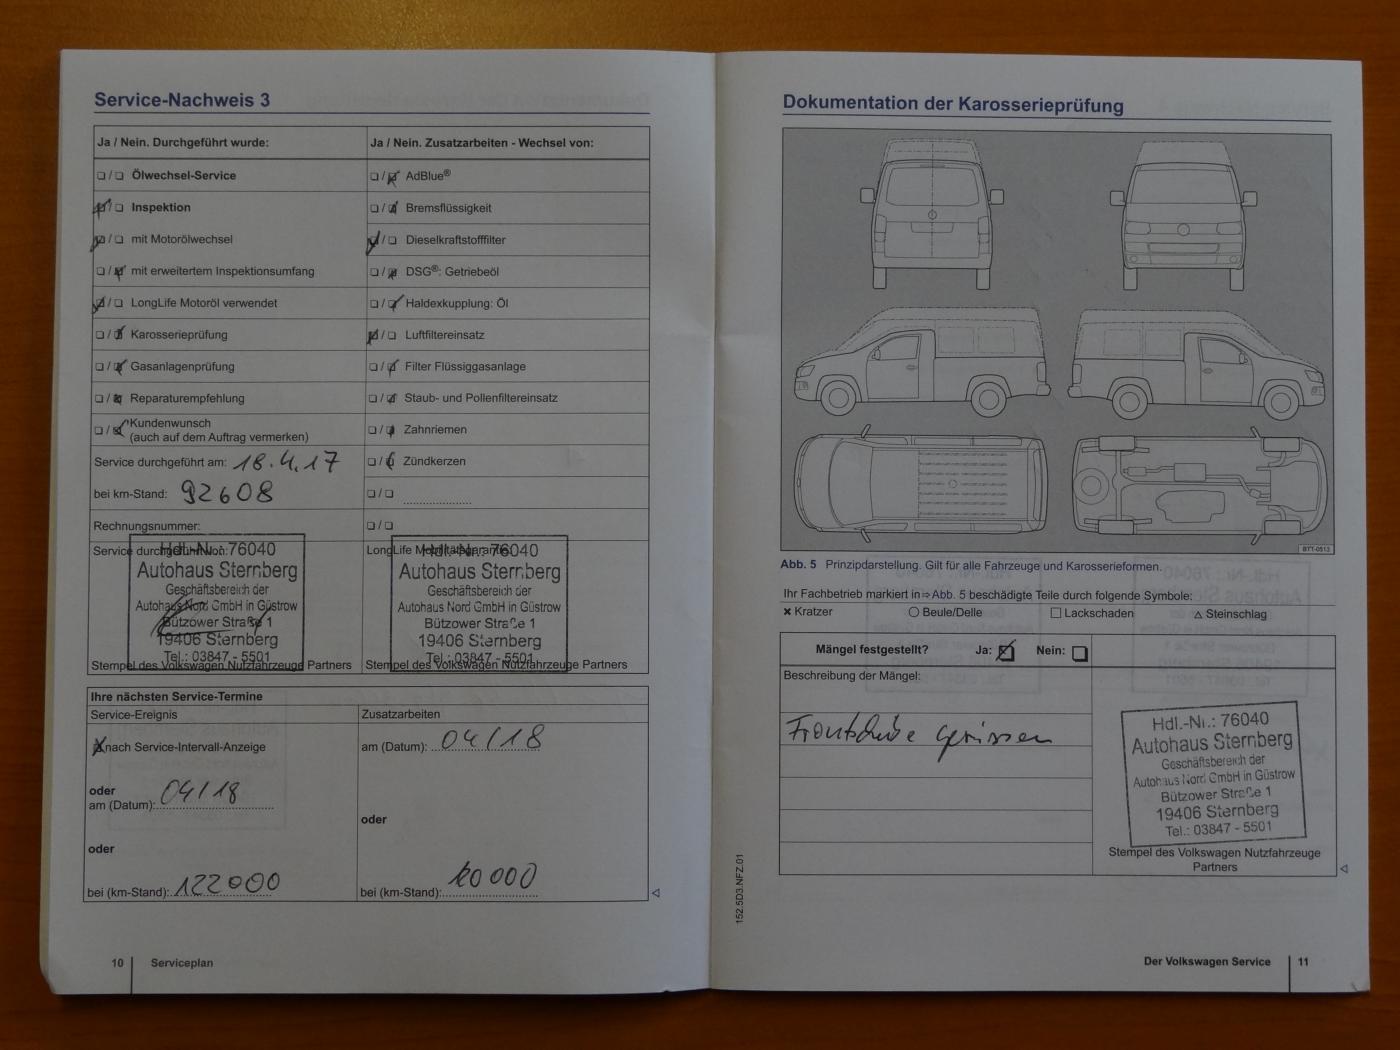 Service-Nachweis 3
Ja / Nein. Durchgeführt wurde:
Ölwechsel-Service
Inspektion
mit Motorölwechsel
mit erweitertem Inspektionsumfang
LongLife Motoröl verwendet
Karosserieprüfung
Gasanlagenprüfung
Reparaturempfehlung
Kundenwunsch
(auch auf dem Auftrag vermerken)
Service durchgeführt am: 18.4.17
bei km-Stand: 92608
Rechnungsnummer:
Service durchgeführt von:
Hdl.-Nr.: 76040
Autohaus Sternberg
Geschäftsbereich der
Autohaus Nord GmbH in Güstrow
Bützower Straße 1
19406 Sternberg
Tel.: 03847 - 5501
Stempel des Volkswagen Nutzfahrzeuge Partners
Ja / Nein. Zusatzarbeiten - Wechsel von:
AdBlue®
Bremsflüssigkeit
Dieselkraftstofffilter
DSG®: Getriebeöl
Haldexkupplung: Öl
Luftfiltereinsatz
Filter Flüssiggasanlage
Staub- und Pollenfiltereinsatz
Zahnriemen
Zündkerzen
LongLife Mobilitätsgarantie
Hdl.-Nr.: 76040
Autohaus Sternberg
Geschäftsbereich der
Autohaus Nord GmbH in Güstrow
Bützower Straße 1
19406 Sternberg
Tel.: 03847 - 5501
Stempel des Volkswagen Nutzfahrzeuge Partners
Ihre nächsten Service-Termine
Service-Ereignis
nach Service-Intervall-Anzeige
oder
am (Datum): 04/18
oder
bei (km-Stand): 122000
Zusatzarbeiten
am (Datum): 04/18
oder
bei (km-Stand): 120000
10 Serviceplan
Dokumentation der Karosserieprüfung
BTT-0513
Abb. 5 Prinzipdarstellung. Gilt für alle Fahrzeuge und Karosserieformen.
Ihr Fachbetrieb markiert in ⇨ Abb. 5 beschädigte Teile durch folgende Symbole:
✖ Kratzer ○ Beule/Delle □ Lackschaden △ Steinschlag
Mängel festgestellt? Ja: Nein:
Beschreibung der Mängel:
Frontscheibe gerissen
Hdl.-Nr.: 76040
Autohaus Sternberg
Geschäftsbereich der
Autohaus Nord GmbH in Güstrow
Bützower Straße 1
19406 Sternberg
Tel.: 03847 - 5501
Stempel des Volkswagen Nutzfahrzeuge
Partners
152.5D3.NFZ.01
Der Volkswagen Service 11